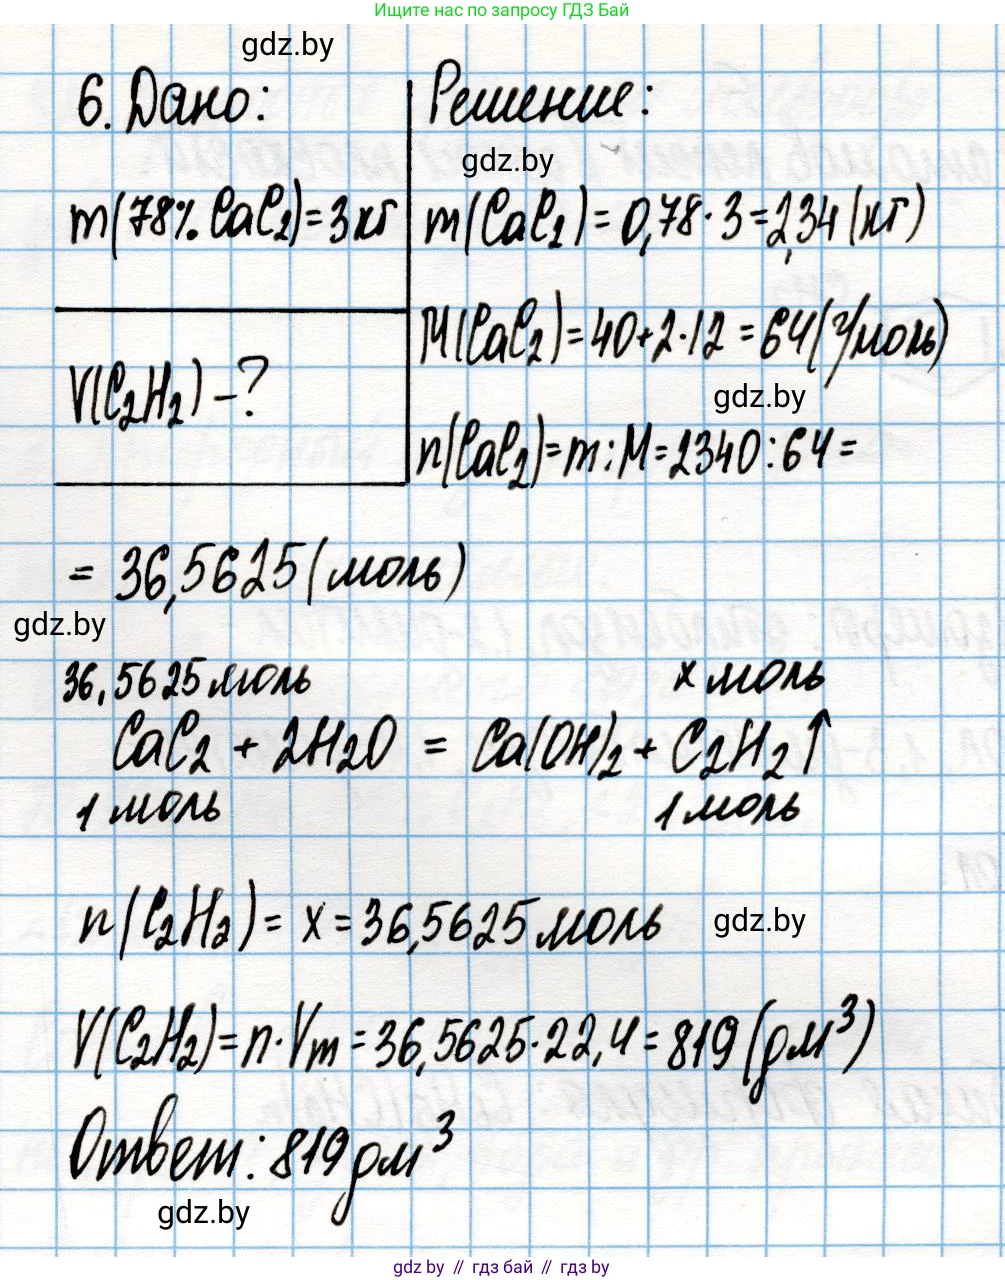 Ищите нас по запросу ГДЗ Бай
gdz.by
6. Дано:
Решение:
gdz.by
m(78% CaC₂)=3 кг
m(CaC₂) = 0,78·3=2,34 (кг)
M(CaC₂)=40+2·12=64(г/моль)
V(C₂H₂) -?
gdz.by
n(CaC₂)=m:M=2340:64=
= 36,5625 (моль)
gdz.by
36,5625 моль x моль
CaC₂ + 2H₂O = Ca(OH)₂ + C₂H₂↑
1 моль 1 моль
n(C₂H₂)= x = 36,5625 моль
gdz.by
V(C₂H₂)=n·Vm=36,5625·22,4=819 (дм³)
Ответ: 819 дм³
gdz.by
gdz by // гдз бай // гдз by